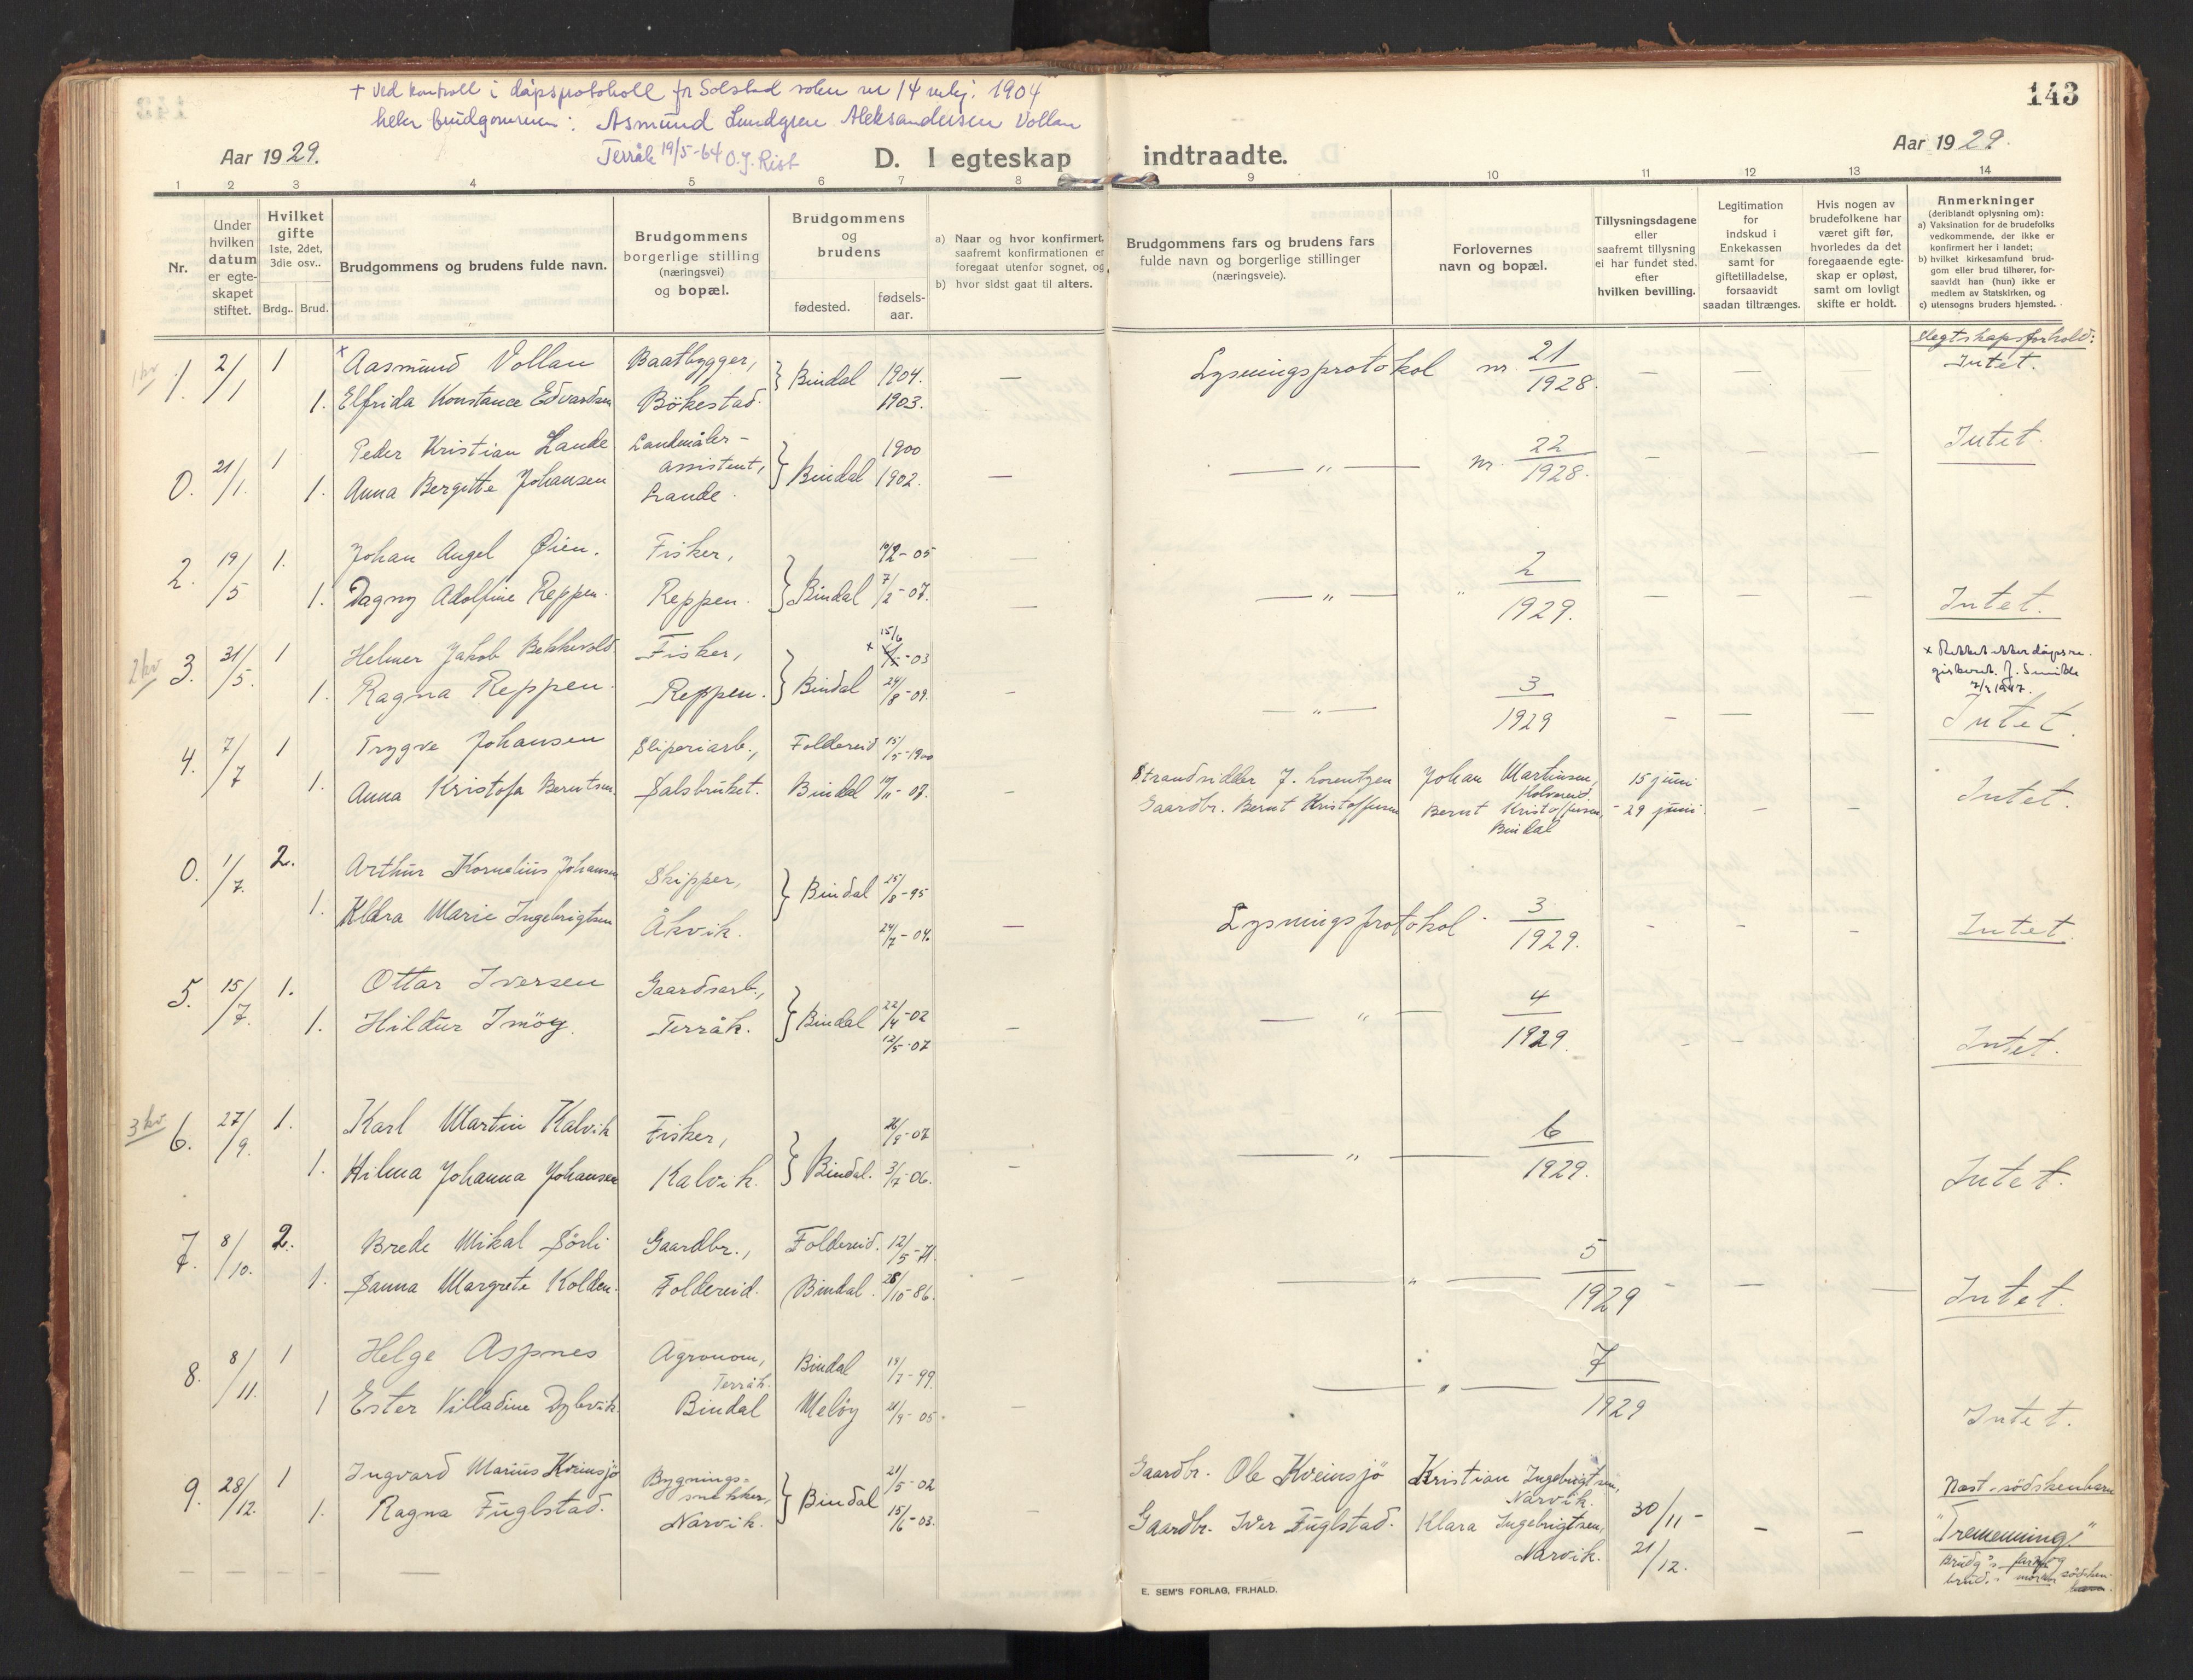 + Ved kontroll i dåpsprotokoll for Solstad sokn nr 14 1904
heter brudgommen: Asmund Lundgren Aleksandersen Vollan
Terråk 19/5-64 O.J. Rist
143
Aar 1929.
D. I egteskap indtraadte.
Aar 1929.
1 2 3 4 5 6 7 8 9 10 11 12 13 14
Nr.
Under hvilken datum er egteskapet stiftet.
Hvilket gifte 1ste, 2det, 3die osv..
Brdg.. Brud.
Brudgommens og brudens fulde navn.
Brudgommens borgerlige stilling (næringsvei) og bopæl.
Brudgommens og brudens
fødested.
fødsels-aar.
a) Naar og hvor konfirmert, saafremt konfirmationen er foregaat utenfor sognet, og
b) hvor sidst gaat til alters.
Brudgommens fars og brudens fars fulde navn og borgerlige stillinger (næringsveie).
Forlovernes navn og bopæl.
Tillysningsdagene eller saafremt tillysning ei har fundet sted, efter hvilken bevilling.
Legitimation for indskud i Enkekassen samt for giftetilladelse, forsaavidt saadan tiltrænges.
Hvis nogen av brudefolkene har været gift før, hvorledes da det foregaaende egteskap er opløst, samt om lovligt skifte er holdt.
Anmerkninger
(deriblandt oplysning om):
a) Vaksination for de brudefolks vedkommende, der ikke er konfirmert her i landet;
b) hvilket kirkesamfund brudgom eller brud tilhører, forsaavidt han (hun) ikke er medlem av Statskirken, og
c) utensogns bruders hjemsted.
Slegtskapsforhold:
1 kv
1. 2/1 1 x Aasmund Vollan Baatbygger, } Bindal 1904. — Lysningsprotokol nr. 21/1928. — — Intet.
1. Elfrida Konstance Edvardsen Bökestad. 1903.
0. 21/1. 1 Peder Kristian Lande Landmåler- 1900 — " — nr. 22/1928. — — — Intet.
assistent, } Bindal
1. Anna Bergitte Johansen Lande. 1902. —
2. 19/5 1. Johan Angel Øien. Fisker, 19/2-05 — — " — " 2/1929. — — — Intet.
1. Dagny Adolfine Reppen. Reppen. } Bindal 7/2-07. —
2 kv
3. 31/5. 1 Helmer Jakob Bekkevold Fisker, x 15/6-03 x Rettet etter dåpsre-
gisteret. J. Smikke
7/2 1947.
1. Ragna Reppen. Reppen. } Bindal 24/8-09. — — " — 3/1929 — — — Intet.
4. 7/7 1 Trygve Johansen Sliperiarb., Foldereid 15/5-1900 Strandsidder J. Lorentzen Johan Martinsen, 15 juni
Holvereid.
1. Anna Kristofa Berntsen. Salsbruket. Bindal 10/11-07. — Gaardbr. Bernt Kristoffersen Bernt Kristoffersen, - 29 juni. — — Intet.
Bindal
0. 1/7. 2. Arthur Kornelius Johansen Skipper, } Bindal 25/8-95
1. Klara Marie Ingebrigtsen Åkvik. 24/7-04. — Lysningsprotokol. 3/1929. - - - Intet.
5. 15/7. 1. Ottar Iversen Gaardsarb., } Bindal 22/4-02 — " — 4/1929.
1. Hildur Imöy. Terråk. 12/5-07 — - - Intet.
3 kv.
6. 27/9. 1. Karl Martin Kalvik Fisker, } Bindal. 26/9-07 — " — 6/1929.
1. Hilma Johanna Johansen Kalvik. 3/7-06. — Intet.
7. 8/10. 2. Brede Mikal Sörli Gaardbr., Foldereid. 12/5-71. — " — 5/1929 - — —
1. Sanna Margrete Kolden. Foldereid. Bindal. 28/10-86. — Intet.
8. 8/11. 1 Helge Aspnes Agronom, Bindal 19/7-99. — " — 7/1929
Terråk.
1 Ester Villadine Dybvik. Bindal Melöy 21/9-05. — Intet.
9. 28/12. 1 Ingvard Marius Kveinsjö Bygnings- 21/5-02 Gaardbr. Ole Kveinsjö Kristian Ingebrigtsen, Næst-södskenbarn
snekker, } Bindal Narvik. 30/11 -
1. Ragna Fuglstad. Narvik. 15/6-03. — Gaardbr. Iver Fuglstad. Klara Ingebrigtsen, — — "Tremenning"
Narvik. 21/12.
Brudg's far og
brud.s morm södsken-
barn.
E. SEM'S FORLAG, FR.HALD.